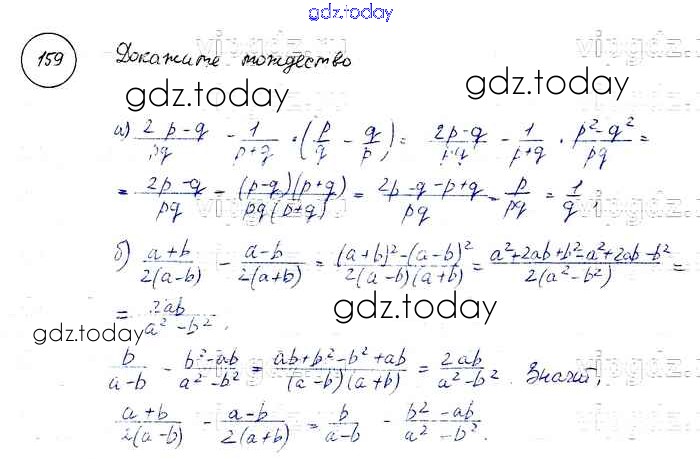 gdz.today
159 Докажите тождество
gdz.today
а) (2p-q)/(pq) - 1/(p+q) · (p/q - q/p) = (2p-q)/(pq) - 1/(p+q) · (p²-q²)/(pq) =
= (2p-q)/(pq) - ((p-q)(p+q))/(pq(p+q)) = (2p-q-p+q)/(pq) = p/(pq) = 1/q.
gdz.today
б) (a+b)/(2(a-b)) - (a-b)/(2(a+b)) = ((a+b)²-(a-b)²)/(2(a-b)(a+b)) = (a²+2ab+b²-a²+2ab-b²)/(2(a²-b²)) =
= 2ab/(a²-b²).
gdz.today
gdz.today
b/(a-b) - (b²-ab)/(a²-b²) = (ab+b²-b²+ab)/((a-b)(a+b)) = 2ab/(a²-b²). Значит,
(a+b)/(2(a-b)) - (a-b)/(2(a+b)) = b/(a-b) - (b²-ab)/(a²-b²).
gdz.today